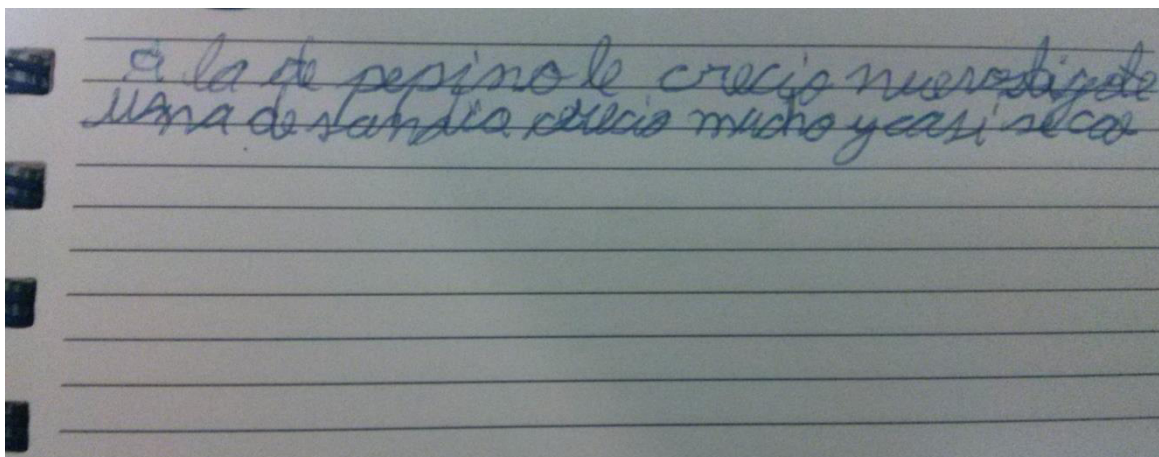 A la de pepino le crecio nuevo bigote
Una de sandia crecio mucho y casi se cae